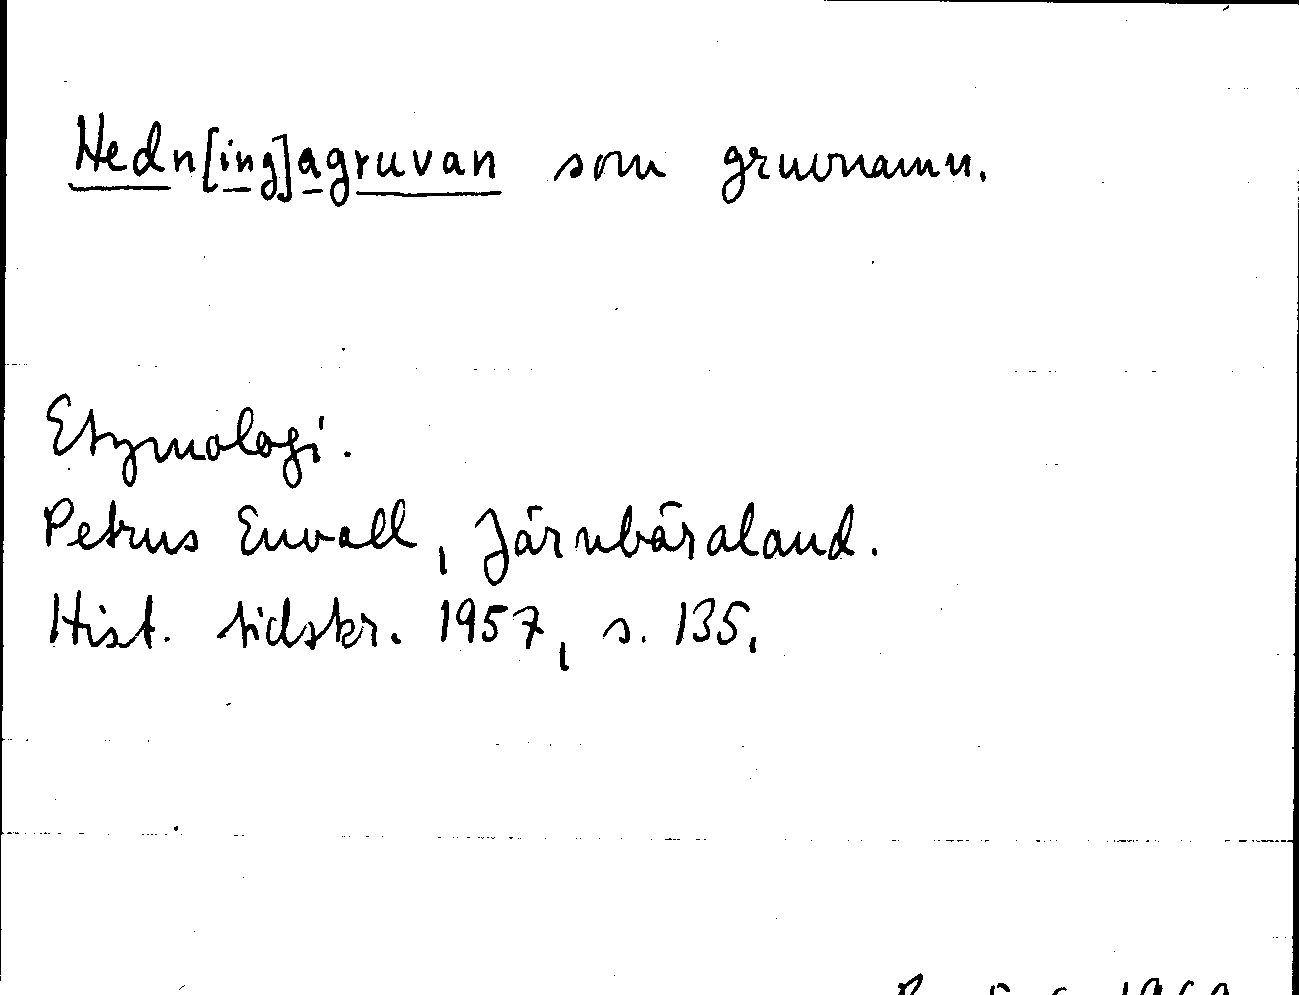 Hedn[ing]agruvan som gruvnamn.
Etymologi.
Petrus Envall, Järnbäraland.
Hist. tidskr. 1957, s. 135.